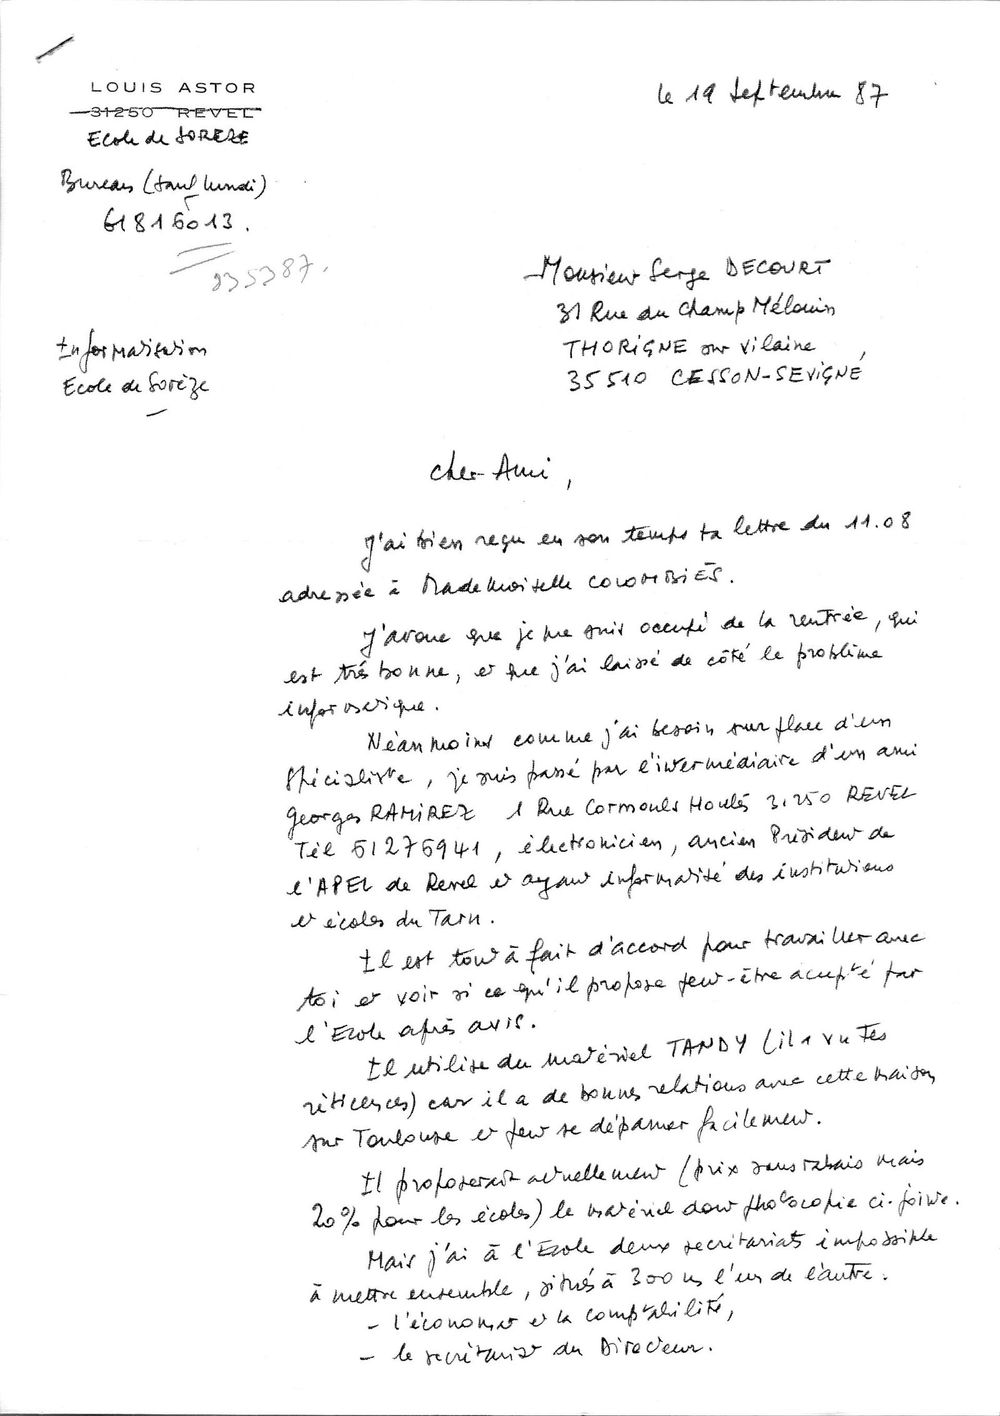 LOUIS ASTOR
31250 REVEL
Ecole de SOREZE
le 19 Septembre 87
Bureau (sauf lundi)
61816013.
835387.
Monsieur Serge DECOURT
31 Rue du Champ Mélouin
THORIGNE sur Vilaine
35510 CESSON-SEVIGNÉ
Informatisation
Ecole de Sorèze
Cher Ami,
J'ai bien reçu en son temps ta lettre du 11.08
adressée à Mademoiselle COLOMBIÈS.
J'avoue que je me suis occupé de la rentrée, qui
est très bonne, et que j'ai laissé de côté le problème
informatique.
Néanmoins comme j'ai besoin sur place d'un
spécialiste, je suis passé par l'intermédiaire d'un ami
Georges RAMIREZ 1 Rue Cormouls Houlès 31250 REVEL
Tél 61276941, électronicien, ancien Président de
l'APEL de Revel et ayant informatisé des institutions
et écoles du Tarn.
Il est tout à fait d'accord pour travailler avec
toi et voir si ce qu'il propose peut-être accepté par
l'Ecole après avis.
Il utilise du matériel TANDY (il a vu tes
réticences) car il a de bonnes relations avec cette maison
sur Toulouse et peut se dépanner facilement.
Il proposerait actuellement (prix sans rabais mais
20% pour les écoles) le matériel dont photocopie ci-jointe.
Mais j'ai à l'Ecole deux secrétariats impossible
à mettre ensemble, situés à 300 m l'un de l'autre.
- l'économat et la comptabilité,
- le secrétariat du Directeur.